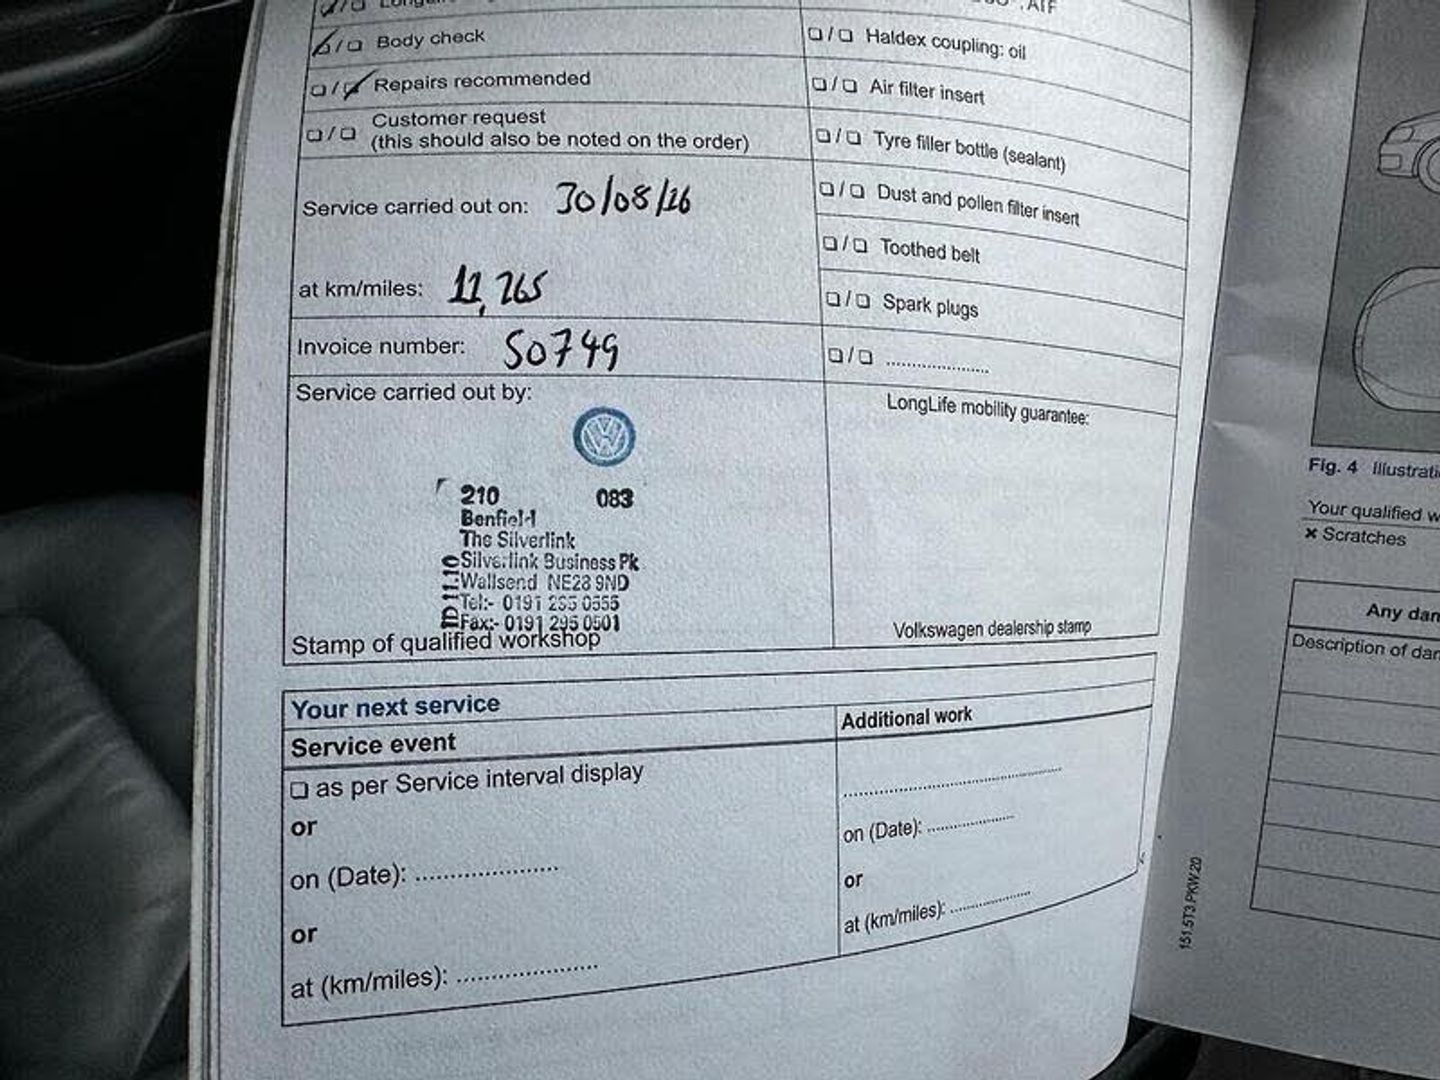 Body check
Repairs recommended
Customer request
(this should also be noted on the order)
Service carried out on: 30/08/16
at km/miles: 11,765
Invoice number: 50749
Service carried out by:
210 083
Benfield
The Silverlink
Silverlink Business Pk
Wallsend NE28 9ND
Tel:- 0191 295 0555
Fax:- 0191 295 0501
Stamp of qualified workshop
ATF
Haldex coupling: oil
Air filter insert
Tyre filler bottle (sealant)
Dust and pollen filter insert
Toothed belt
Spark plugs
....................
LongLife mobility guarantee:
Volkswagen dealership stamp
Your next service
Service event
as per Service interval display
or
on (Date): ....................
or
at (km/miles): ....................
Additional work
....................
on (Date): ....................
or
at (km/miles): ....................
151.5T3.PKW.20
Fig. 4
Your qualified
× Scratches
Any
Description of